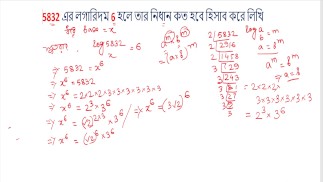 5832 এর লগারিদম 6 হলে তার নিধান কত হবে হিসাব করে লিখি
base = x
log 5832 = 6
x
⇒ 5832 = x⁶
⇒ x⁶ = 5832
⇒ x⁶ = 2×2×2×3×3×3×3×3×3
⇒ x⁶ = 2³ × 3⁶
⇒ x⁶ = (√2)²ˣ³ × 3⁶
⇒ x⁶ = (√2)⁶ × 3⁶
⇒ x⁶ = (3√2)⁶
aᵐ bᵐ
= (ab)ᵐ
2 5832
2 2916
2 1458
3 729
3 243
3 81
3 27
3
log a = m
b
a = bᵐ
aᵐ = bᵐ
⇒ a = b
= 2×2×2×
3×3×3×3×3×3
= 2³ × 3⁶